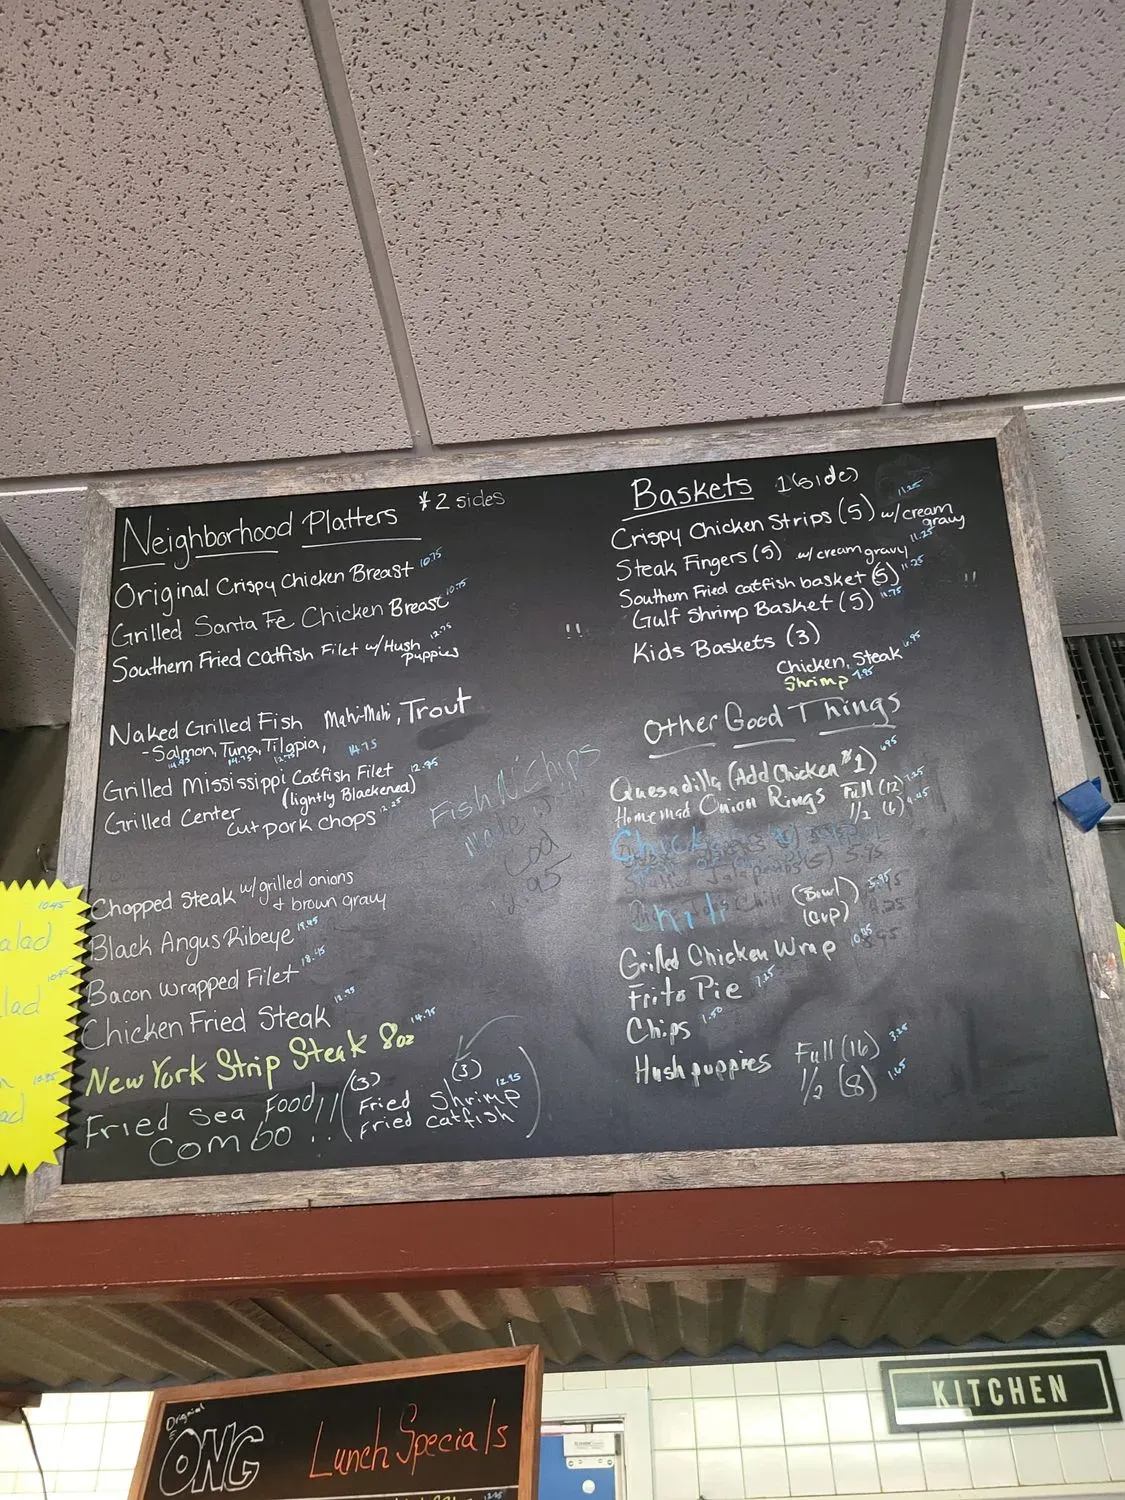 Neighborhood Platters * 2 sides
Original Crispy Chicken Breast 10.75
Grilled Santa Fe Chicken Breast 10.75
Southern Fried Catfish Filet w/ Hush Puppies 12.75
!!
Naked Grilled Fish Mahi-Mahi, Trout
- Salmon, Tuna, Tilapia, 14.75
14.75
Grilled Mississippi Catfish Filet 12.75
(lightly Blackened)
Grilled Center
Cut pork chops 12.25
Fish N' Chips
Cod
Chopped Steak w/ grilled onions
+ brown gravy
Black Angus Ribeye
Bacon Wrapped Filet
Chicken Fried Steak 12.95
New York Strip Steak 8oz 14.75
Fried Sea Food!!
Combo !!
(3) Fried Shrimp (3) 12.95
Fried catfish
Baskets 1 (side)
Crispy Chicken Strips (5) w/ cream gravy 11.25
Steak Fingers (5) w/ cream gravy 11.25
Southern Fried catfish basket (5) 11.25
!!
Gulf Shrimp Basket (5) 11.75
Kids Baskets (3)
Chicken, Steak 6.95
Shrimp 7.95
Other Good Things
Quesadilla (Add Chicken $1) 6.95
Homemad Onion Rings Full (12) 7.25
1/2 (6)
Chili (Bowl) 5.95
(Cup)
Grilled Chicken Wrap
Frito Pie 7.25
Chips 1.50
Hushpuppies Full (16) 3.25
1/2 (8) 1.65
10.45
alad
lad
10.95
Original
ONG
Lunch Specials
KITCHEN